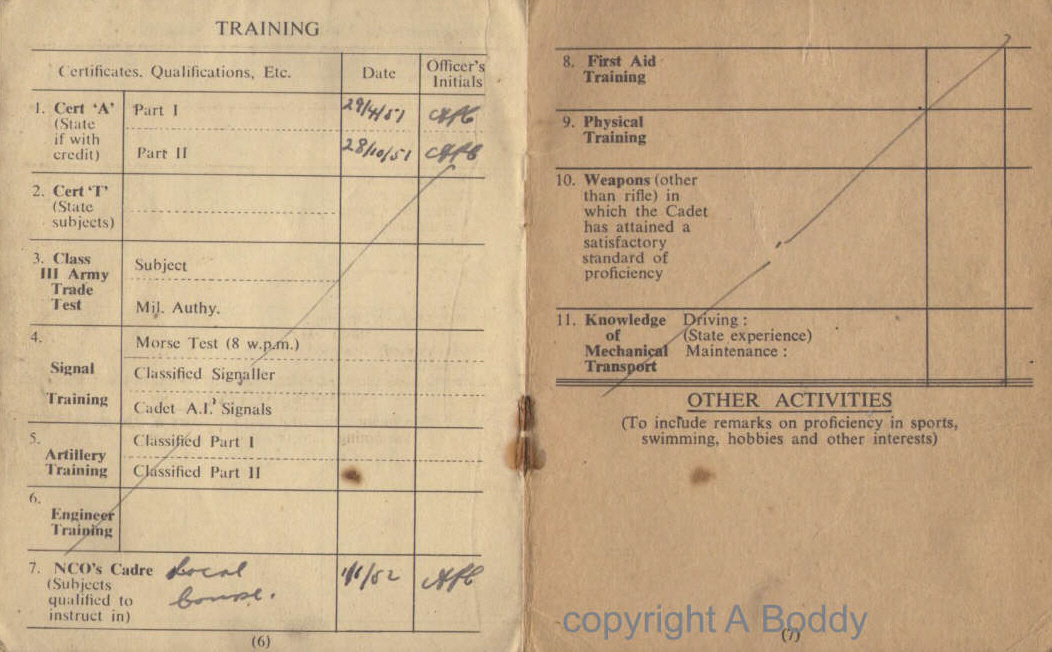 TRAINING
Certificates. Qualifications, Etc.
Date
Officer's
Initials
1. Cert 'A'
(State
if with
credit)
Part I
29/4/51
Part II
28/10/51
2. Cert 'T'
(State
subjects)
3. Class
III Army
Trade
Test
Subject
Mil. Authy.
4.
Signal
Training
Morse Test (8 w.p.m.)
Classified Signaller
Cadet A.I. Signals
5.
Artillery
Training
Classified Part I
Classified Part II
6.
Engineer
Training
7. NCO's Cadre
(Subjects
qualified to
instruct in)
Local
Course.
1/1/52
(6)
8. First Aid
Training
9. Physical
Training
10. Weapons (other
than rifle) in
which the Cadet
has attained a
satisfactory
standard of
proficiency
11. Knowledge
of
Mechanical
Transport
Driving :
(State experience)
Maintenance :
OTHER ACTIVITIES
(To include remarks on proficiency in sports,
swimming, hobbies and other interests)
copyright A Boddy
(7)